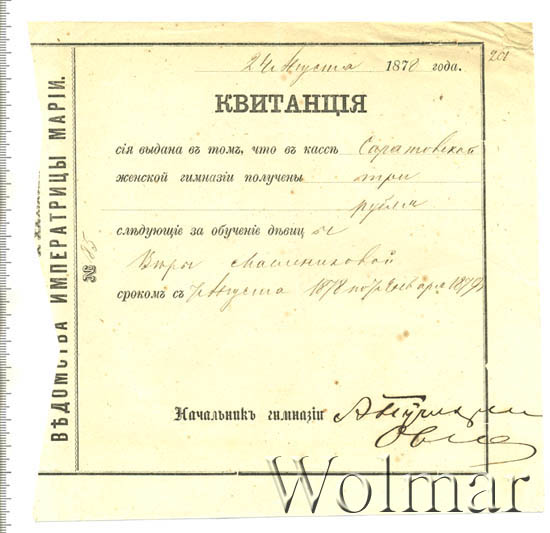 24 Августа 1878 года.
201
КВИТАНЦІЯ
сія выдана въ томъ, что въ кассѣ Саратовской
женской гимназіи получены три
рубля
слѣдующіе за обученіе дѣвиц ы
Вѣры
срокомъ с 7 Августа 1878 по 7 Января 1879
Начальникъ гимназіи
ВѢДОМСТВА ИМПЕРАТРИЦЫ МАРІИ.
№ 85
Wolmar